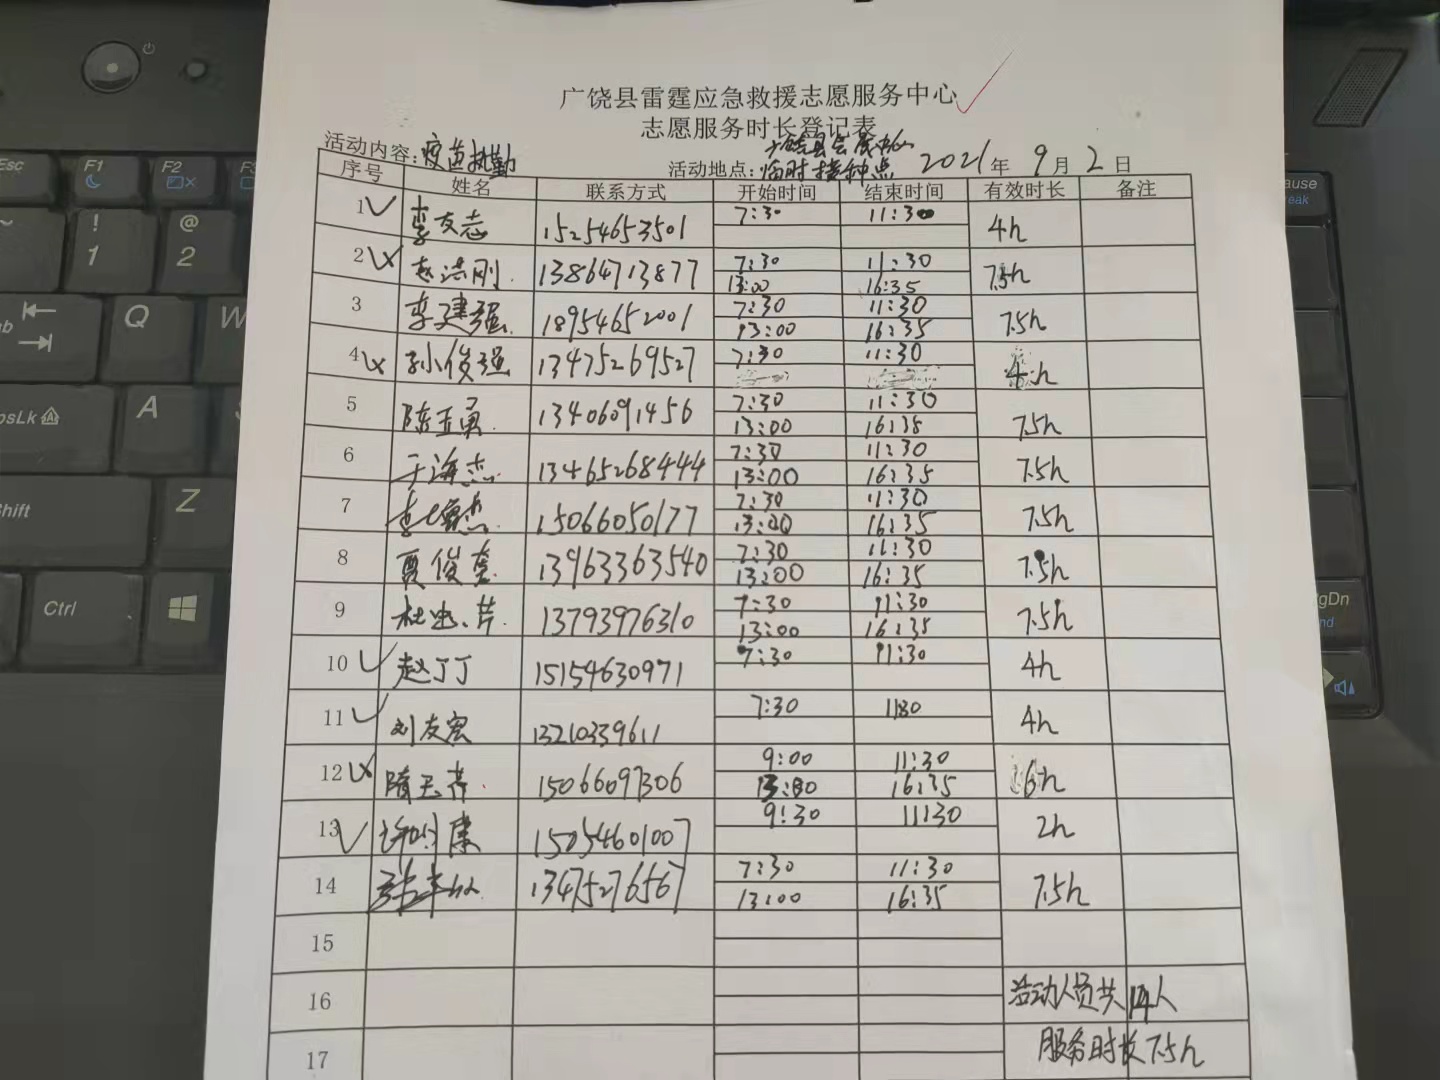 广饶县雷霆应急救援志愿服务中心
志愿服务时长登记表
活动内容:疫苗执勤 活动地点:广饶县会展中心临时接种点 2021年9月2日
序号 姓名 联系方式 开始时间 结束时间 有效时长 备注
1 李友志 15254653501 7:30 11:30 4h
2 赵洪刚 13864713877 7:30 11:30 7.5h
13:00 16:35
3 李建强 18954652001 7:30 11:30 7.5h
13:00 16:35
4 孙俊强 13475269527 7:30 11:30 4h
5 陈玉勇 13406091456 7:30 11:30 7.5h
13:00 16:35
6 于海杰 13465268444 7:30 11:30 7.5h
13:00 16:35
7 15066050177 7:30 11:30 7.5h
13:00 16:35
8 贾俊 13963363540 7:30 11:30 7.5h
13:00 16:35
9 杜 芹 13793976310 7:30 11:30 7.5h
13:00 16:35
10 赵丁丁 15154630971 7:30 11:30 4h
11 刘友宏 13210339611 7:30 1130 4h
12 隋玉芹 15066097306 9:00 11:30 6h
13:00 16:35
13 康 15054601007 9:30 11:30 2h
14 13475276567 7:30 11:30 7.5h
13:00 16:35
15
16 活动人员共14人
17 服务时长7.5h
Esc F1 F2 F3
! @
1 2
Q W
A
Shift Z
Ctrl